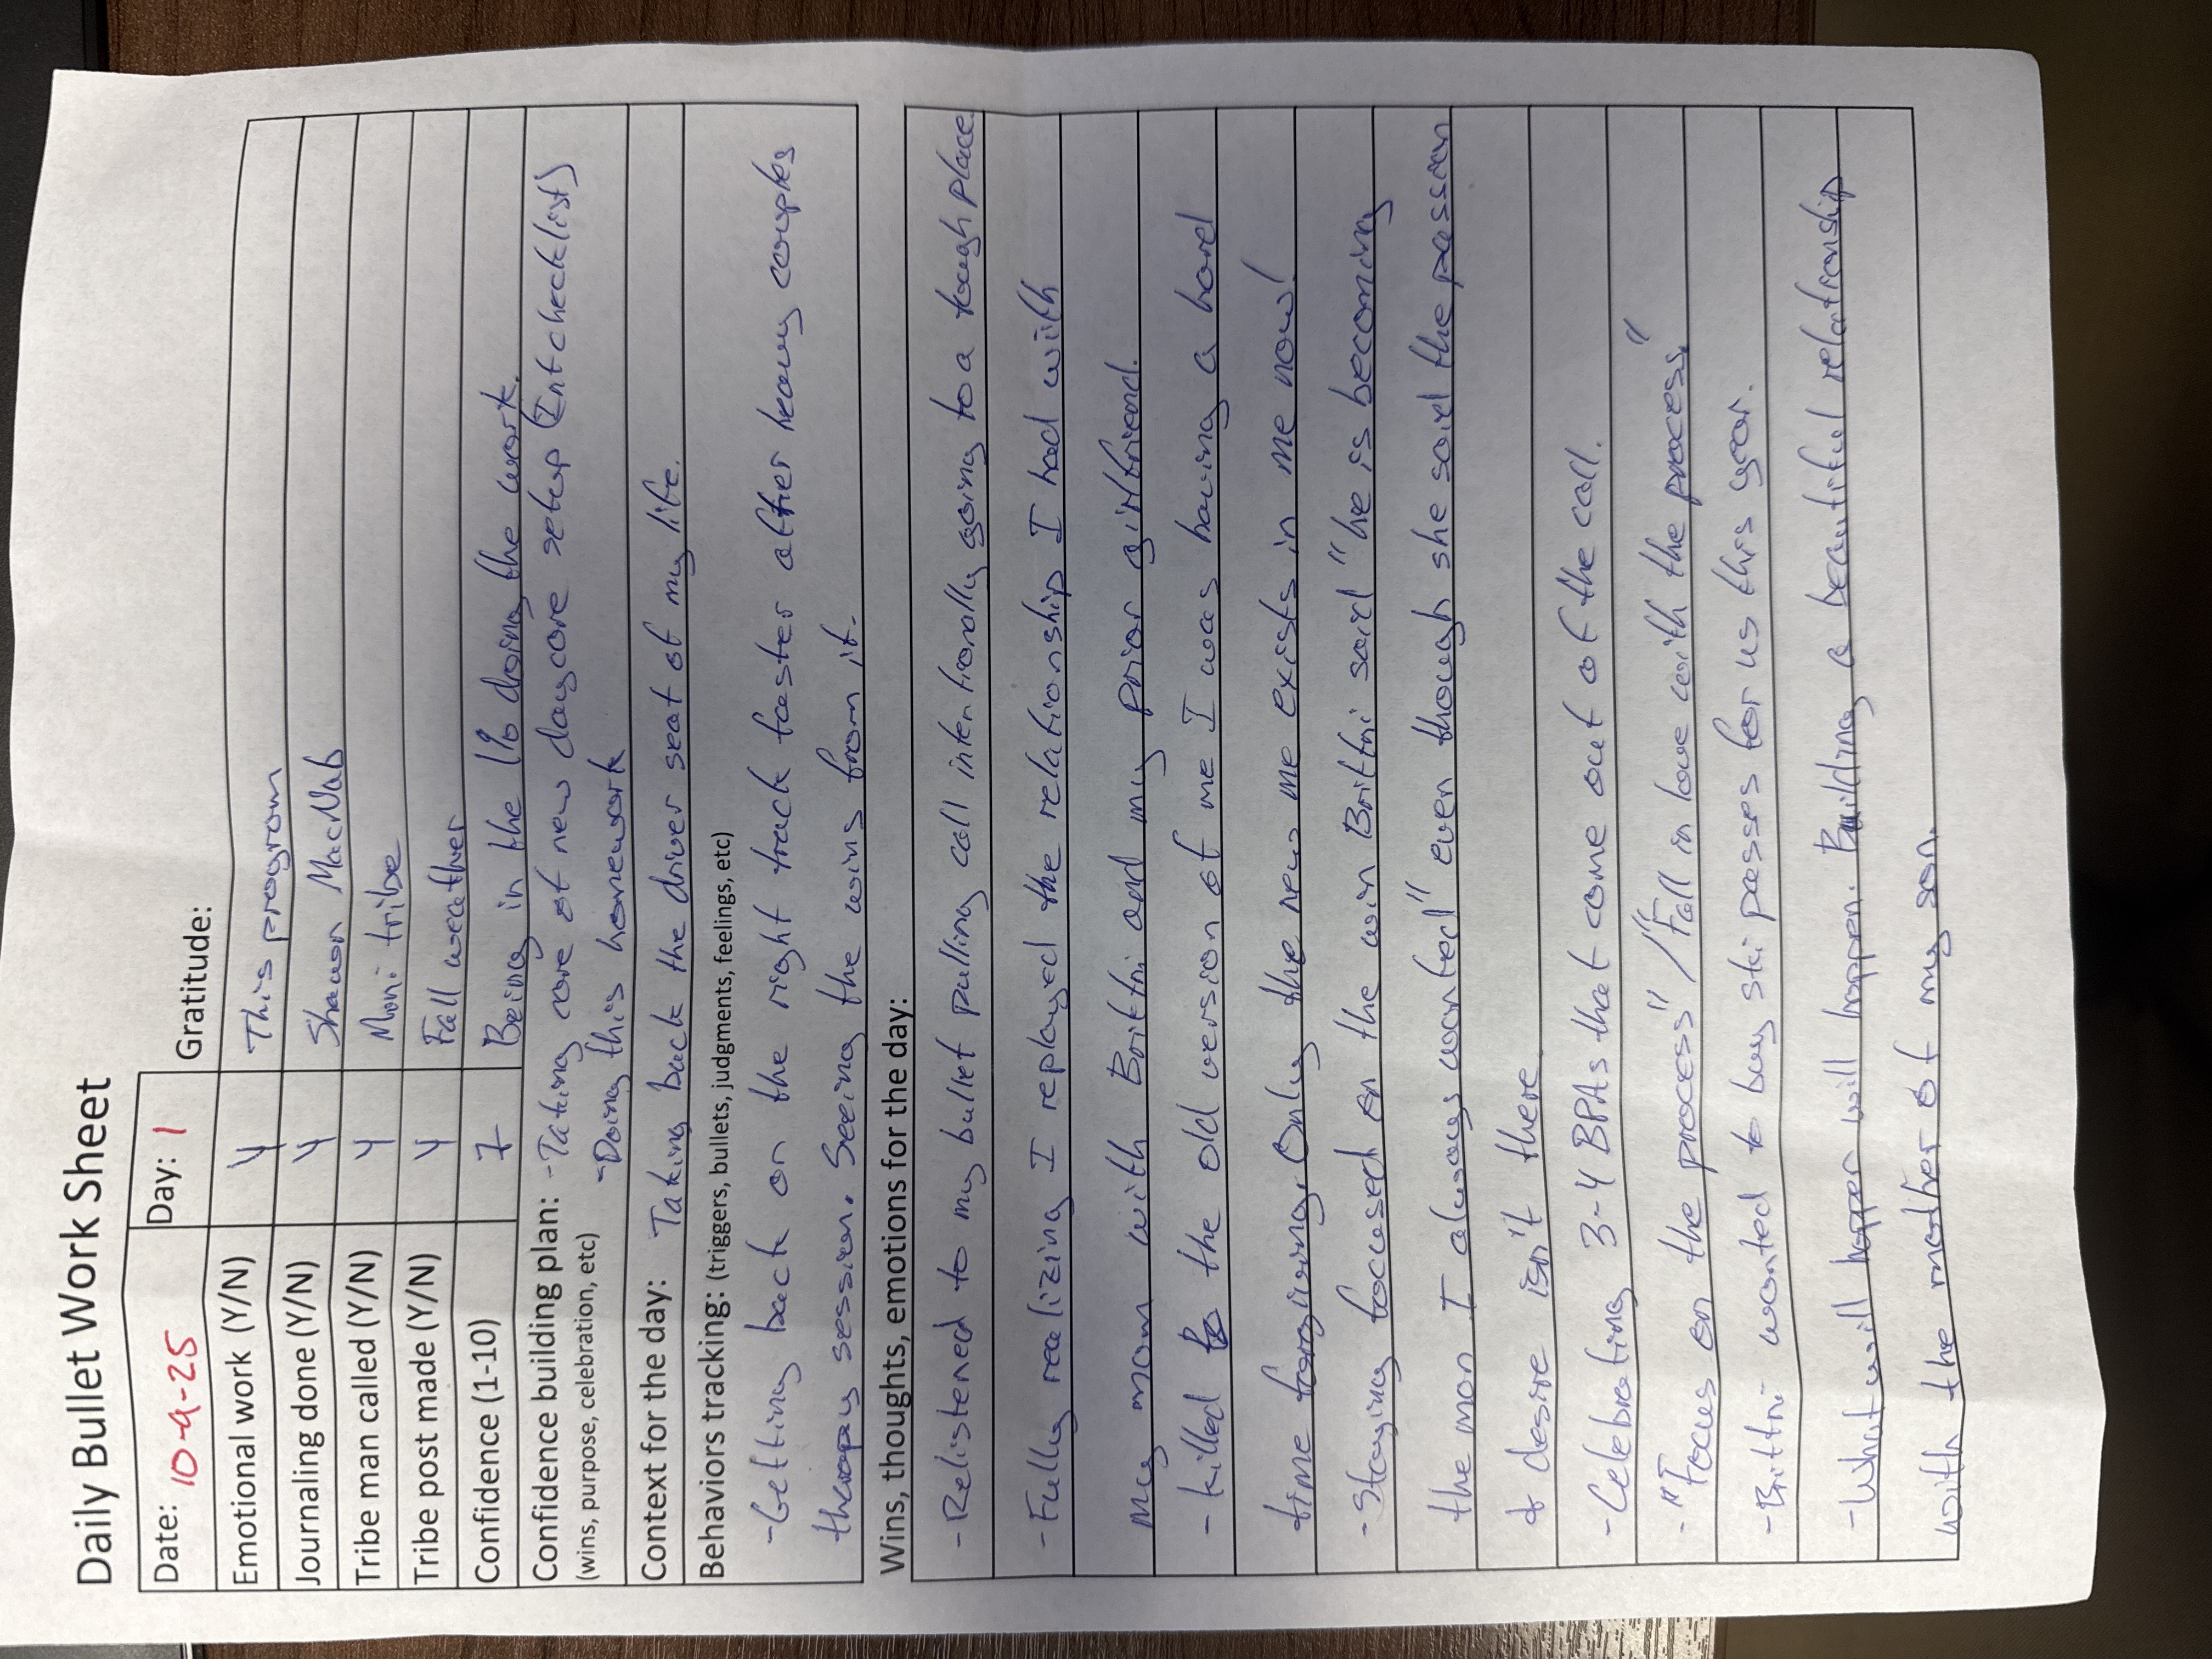 Daily Bullet Work Sheet
Date: 10-9-25 Day: 1 Gratitude:
Emotional work (Y/N) Y This program
Journaling done (Y/N) Y Shawn MacNab
Tribe man called (Y/N) Y Moni tribe
Tribe post made (Y/N) Y Fall weather
Confidence (1-10) 7 Being in the 1% doing the work.
Confidence building plan: -Taking care of new daycare setup (Int checklist)
(wins, purpose, celebration, etc) -Doing this homework
Context for the day: Taking back the driver seat of my life.
Behaviors tracking: (triggers, bullets, judgments, feelings, etc)
-Getting back on the right track faster after heavy couples
therapy session. Seeing the wins from it.
Wins, thoughts, emotions for the day:
-Relistened to my bullet pulling call intentionally going to a tough place.
-Fully realizing I replayed the relationship I had with
my mom with Brittni and my prior girlfriend.
-killed to the old version of me I was having a hard
time forgiving. Only the new me exists in me now!
-Staying focused on the win Brittni said "he is becoming
the man I always wanted" even though she said the passion
& desire isn't there
-Celebrating 3-4 BPAs that come out of the call.
-"Focus on the process" / "Fall in love with the process."
-Brittni wanted to buy ski passes for us this year.
-What will happen will happen. Building a beautiful relationship
with the mother of my son.